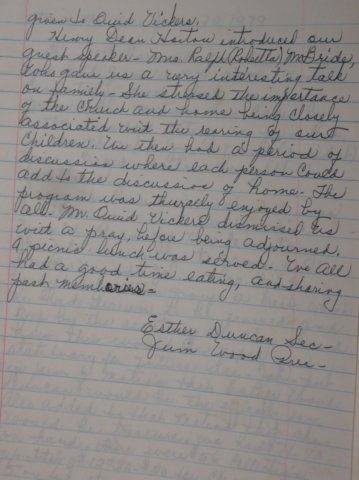 given to Quid Vickers.
Henry Dean Hoiton introduced our
guest speaker - Mrs. Ralph (Robetta) McBride,
who gave us a very interesting talk
on family - She stressed the importance
of the Church and home being closely
associated with the rearing of our
Children. We then had a period of
discussion where each person could
add to the discussion of home - The
program was thursely enjoyed by
all - Mr. Quid Vickers dismissed us
with a pray, before being adjourned.
A picnic lunch was served - We all
had a good time eating, and sharing
pash memories -
Esther Duncan Sec -
Wood Pres -